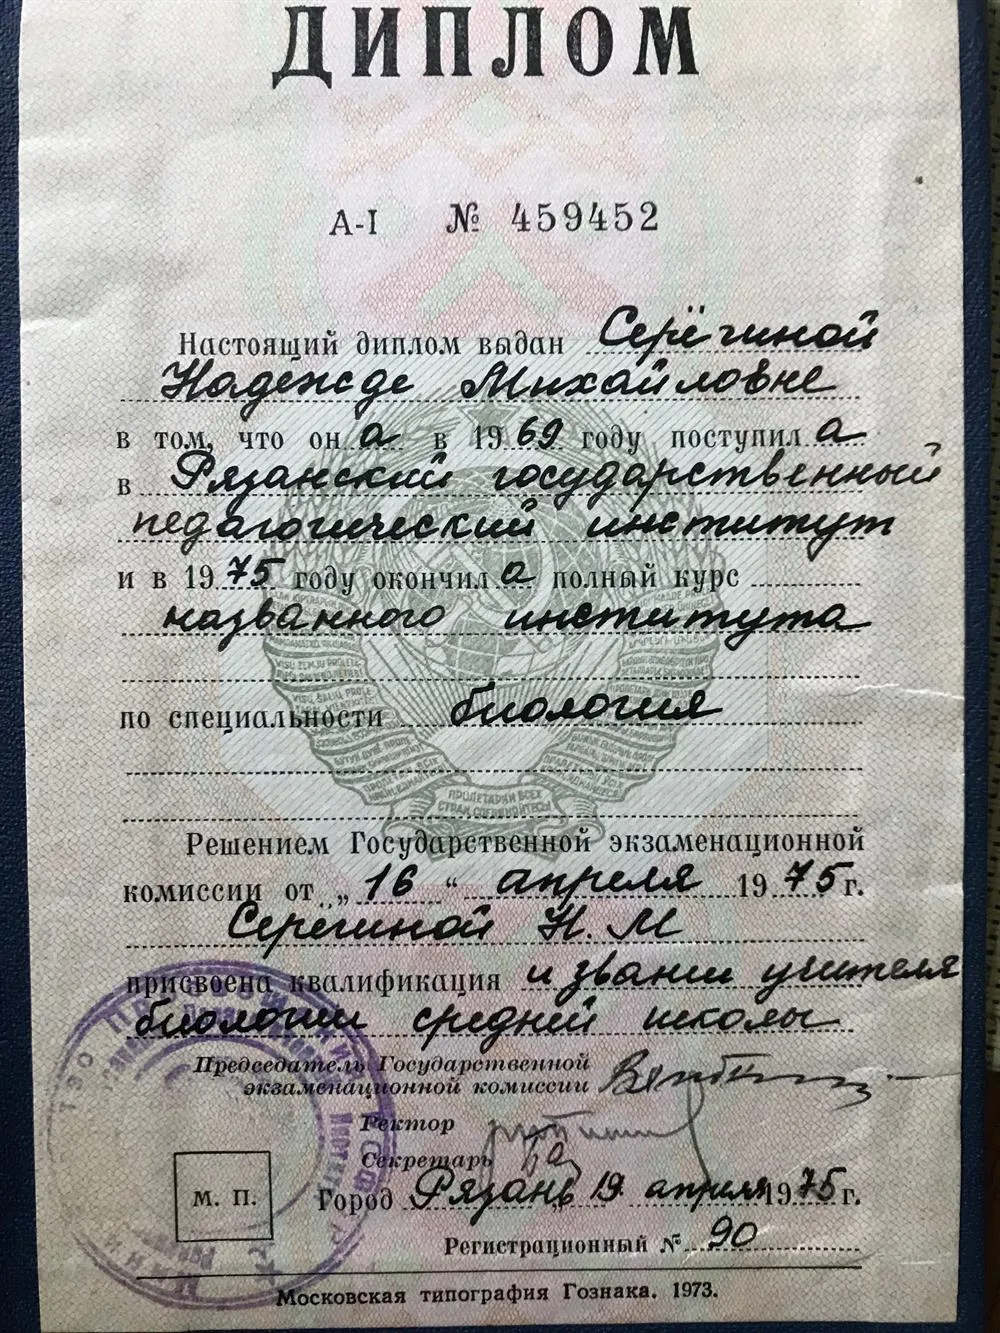 ДИПЛОМ
А-I № 459452
Настоящий диплом выдан Серёгиной
Надежде Михайловне
в том, что он а в 1969 году поступил а
в Рязанский государственный
педагогический институт
и в 1975 году окончил а полный курс
названного института
по специальности биология
Решением Государственной экзаменационной
комиссии от „16“ апреля 1975 г.
Серегиной Н. М
присвоена квалификация и звании учителя
биологии средней школы
Председатель Государственной
экзаменационной комиссии
Ректор
Секретарь
М. П.
Город Рязань „19 апреля 1975 г.
Регистрационный № 90
Московская типография Гознака. 1973.
ПРОЛЕТАРИИ ВСЕХ
СТРАН, СОЕДИНЯЙТЕСЬ